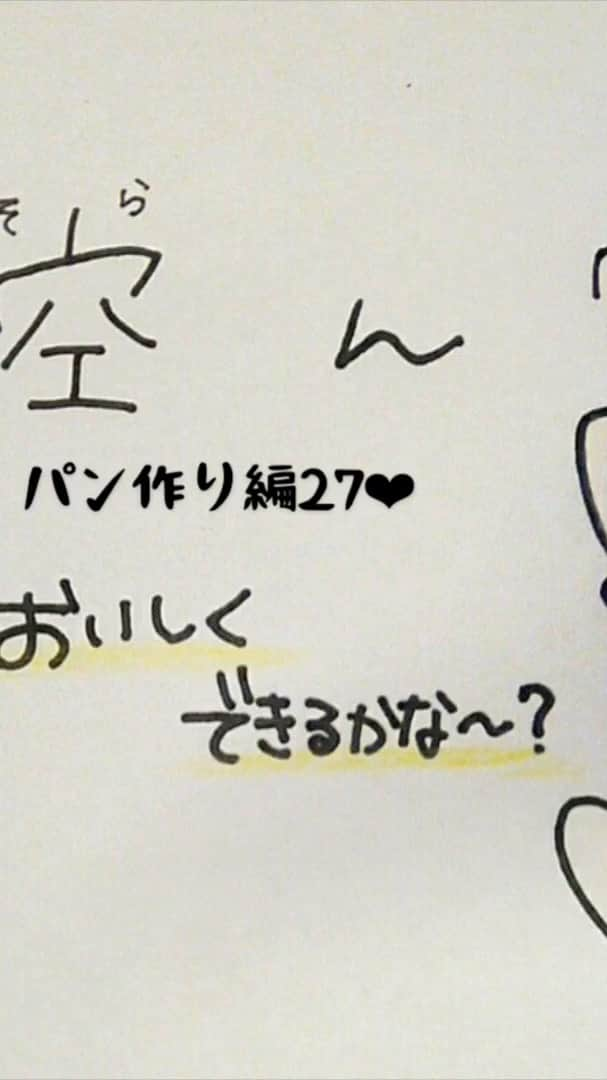 そら
空ん
パン作り編27❤
おいしく
できるかな～?